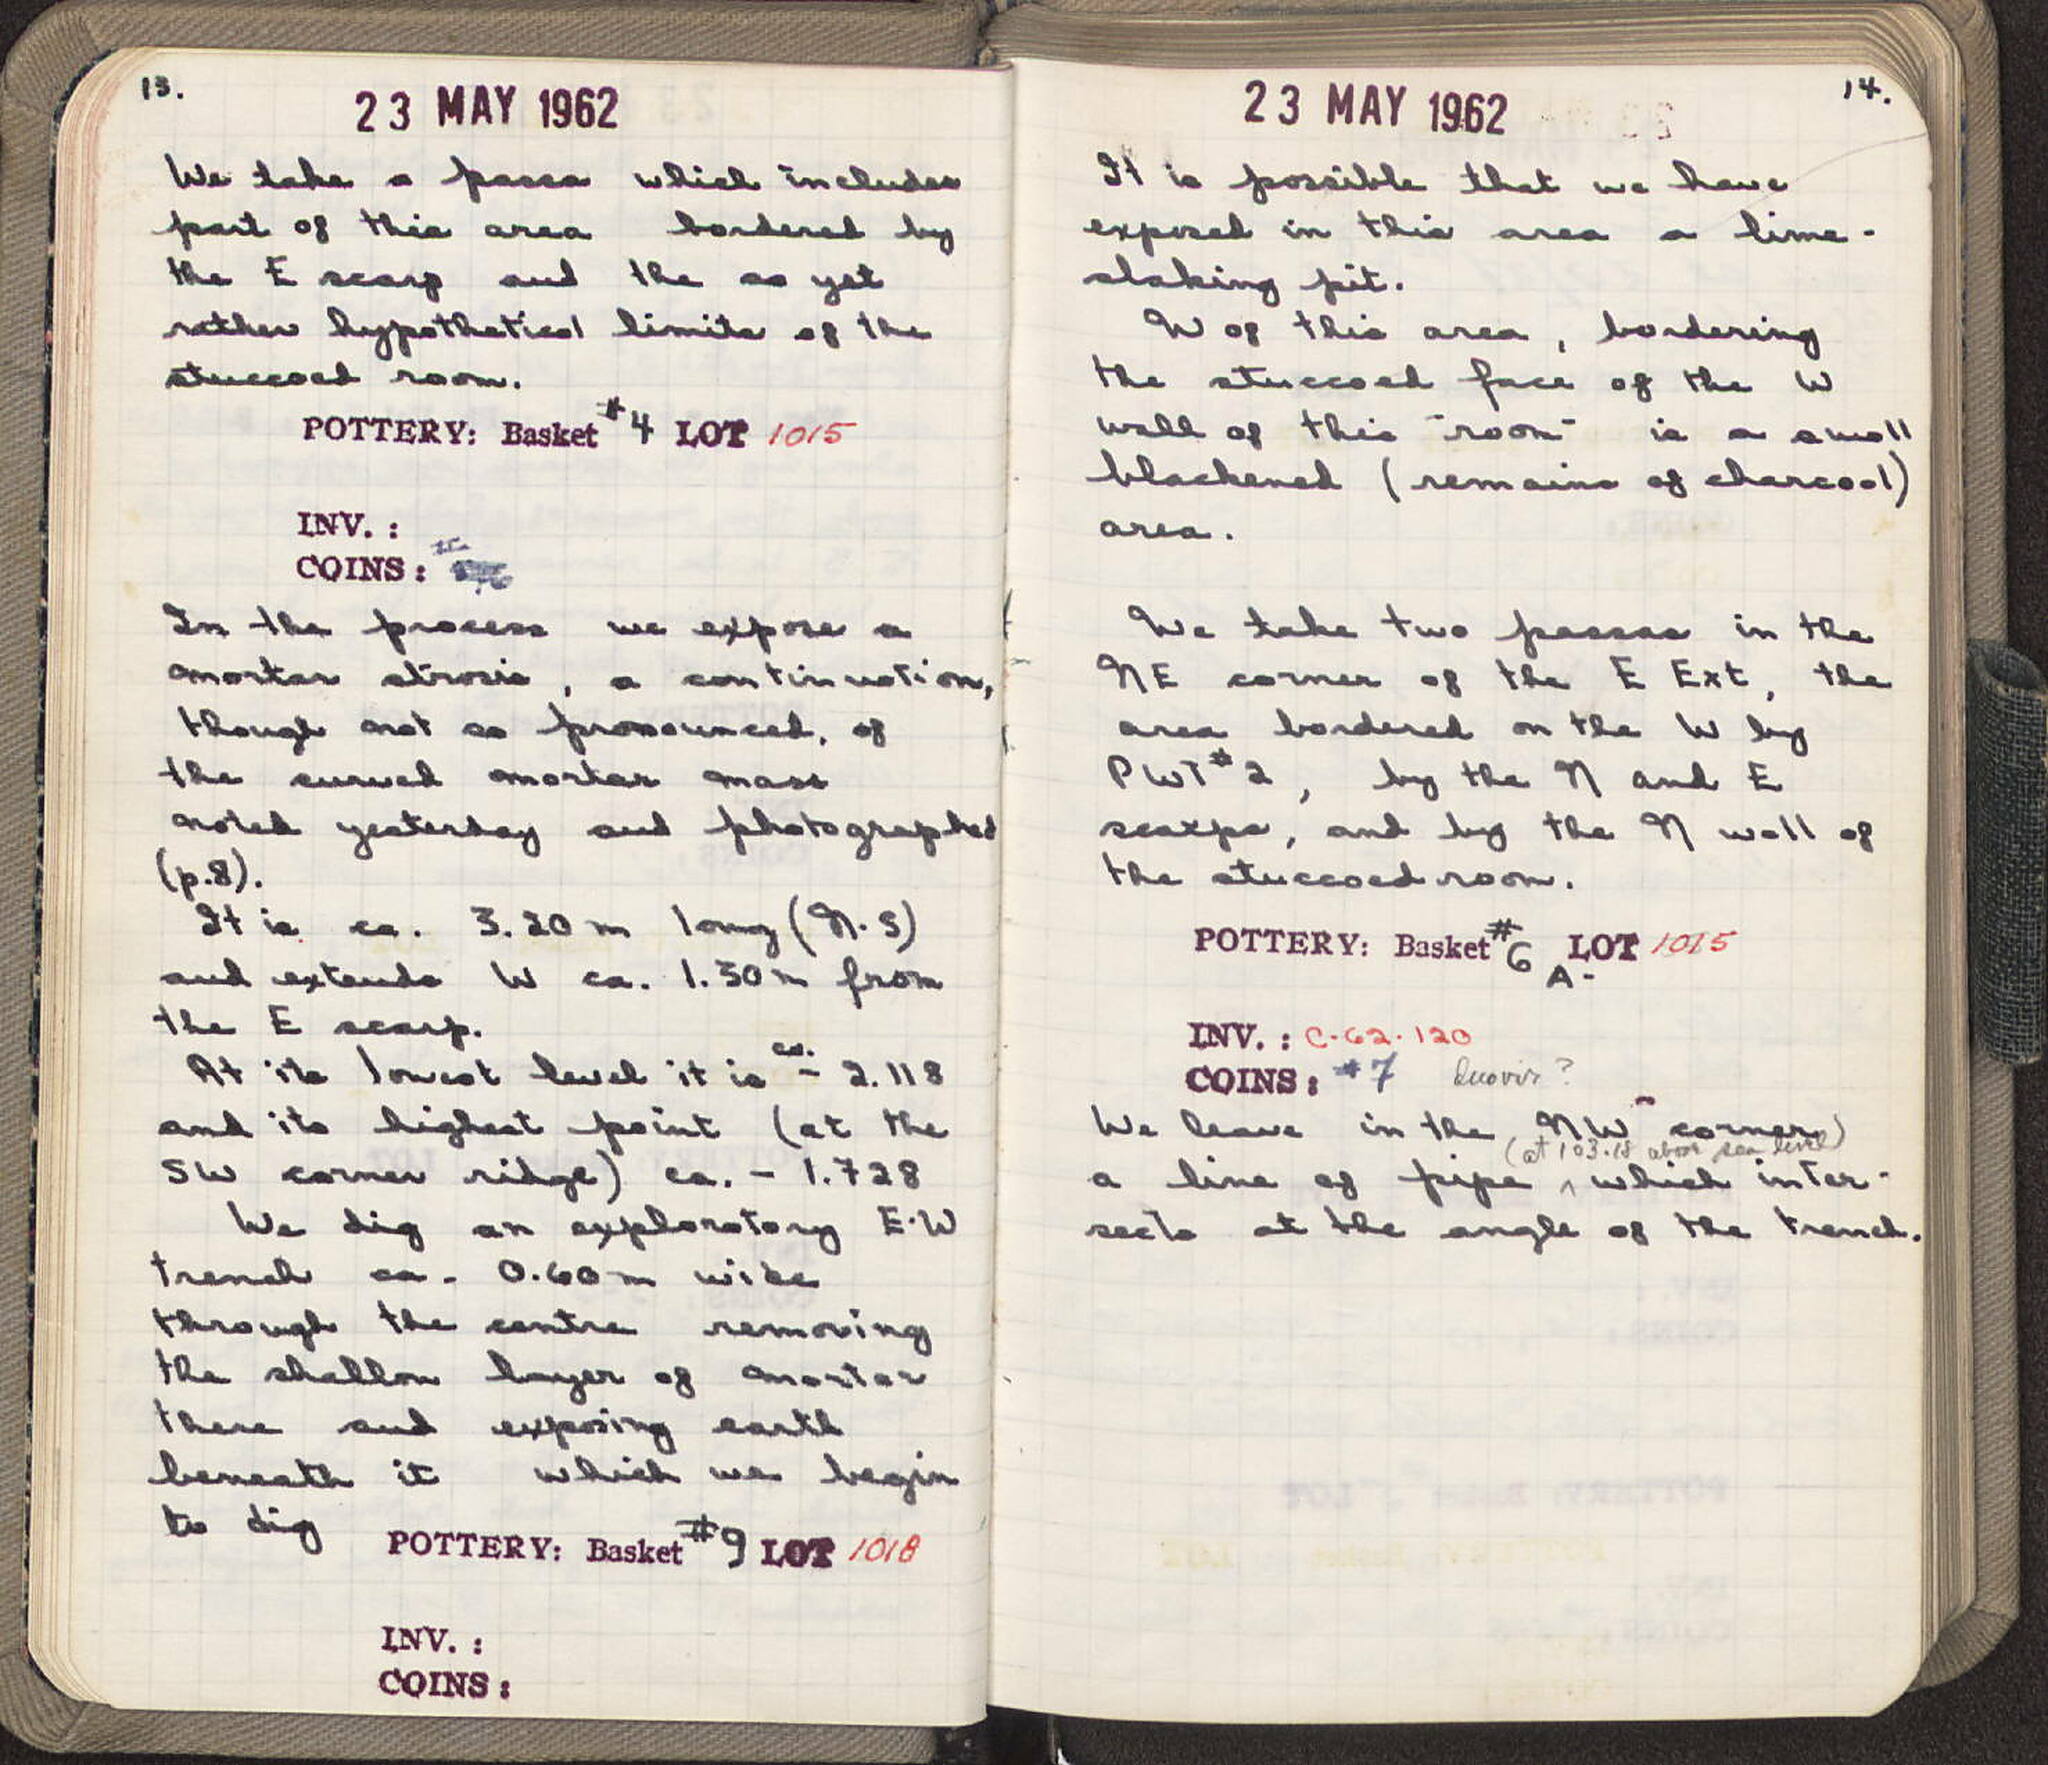 13.
23 MAY 1962
We take a passa which includes
part of this area bordered by
the E scarp and the as yet
rather hypothetical limits of the
stuccoed room.
POTTERY: Basket #4 LOT 1015
INV. :
COINS :
In the process we expose a
mortar strosis, a continuation,
though not so pronounced, of
the curved mortar mass
noted yesterday and photographed
(p.8).
It is ca. 3.20 m long (N-S)
and extends W ca. 1.30 m from
the E scarp.
At its lowest level it is ca. - 2.118
and its highest point (at the
SW corner ridge) ca. - 1.728
We dig an exploratory E-W
trench ca. 0.60 m wide
through the centre removing
the shallow layer of mortar
there and exposing earth
beneath it which we begin
to dig
POTTERY: Basket #9 LOT 1018
INV. :
COINS :
14.
23 MAY 1962
It is possible that we have
exposed in this area a lime-
slaking pit.
W of this area, bordering
the stuccoed face of the W
wall of this "room" is a small
blackened (remains of charcoal)
area.
We take two passas in the
NE corner of the E Ext, the
area bordered on the W by
PWT #2, by the N and E
scarps, and by the N wall of
the stuccoed room.
POTTERY: Basket #6 A- LOT 1015
INV. : C-62-120
COINS : #7 duovir?
We leave in the NW corner
(at 103.18 above sea level)
a line of pipe ^ which inter-
sects at the angle of the trench.